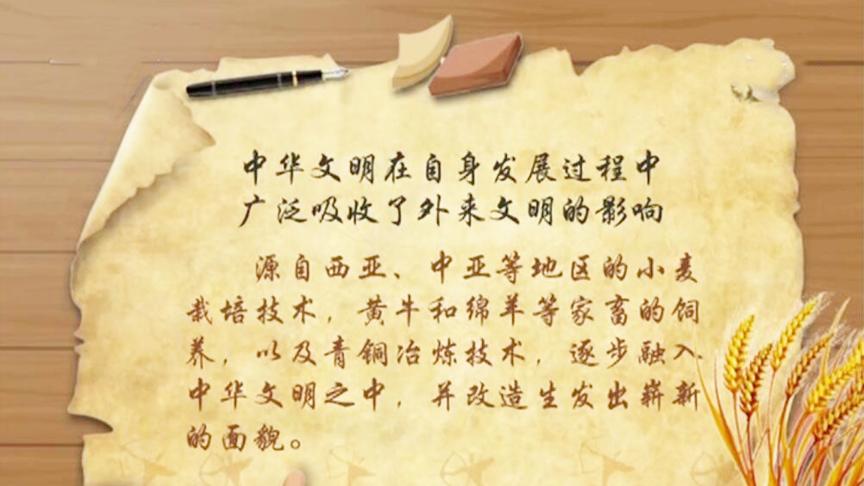 中华文明在自身发展过程中
广泛吸收了外来文明的影响
源自西亚、中亚等地区的小麦
栽培技术，黄牛和绵羊等家畜的饲
养，以及青铜冶炼技术，逐步融入
中华文明之中，并改造生发出崭新
的面貌。